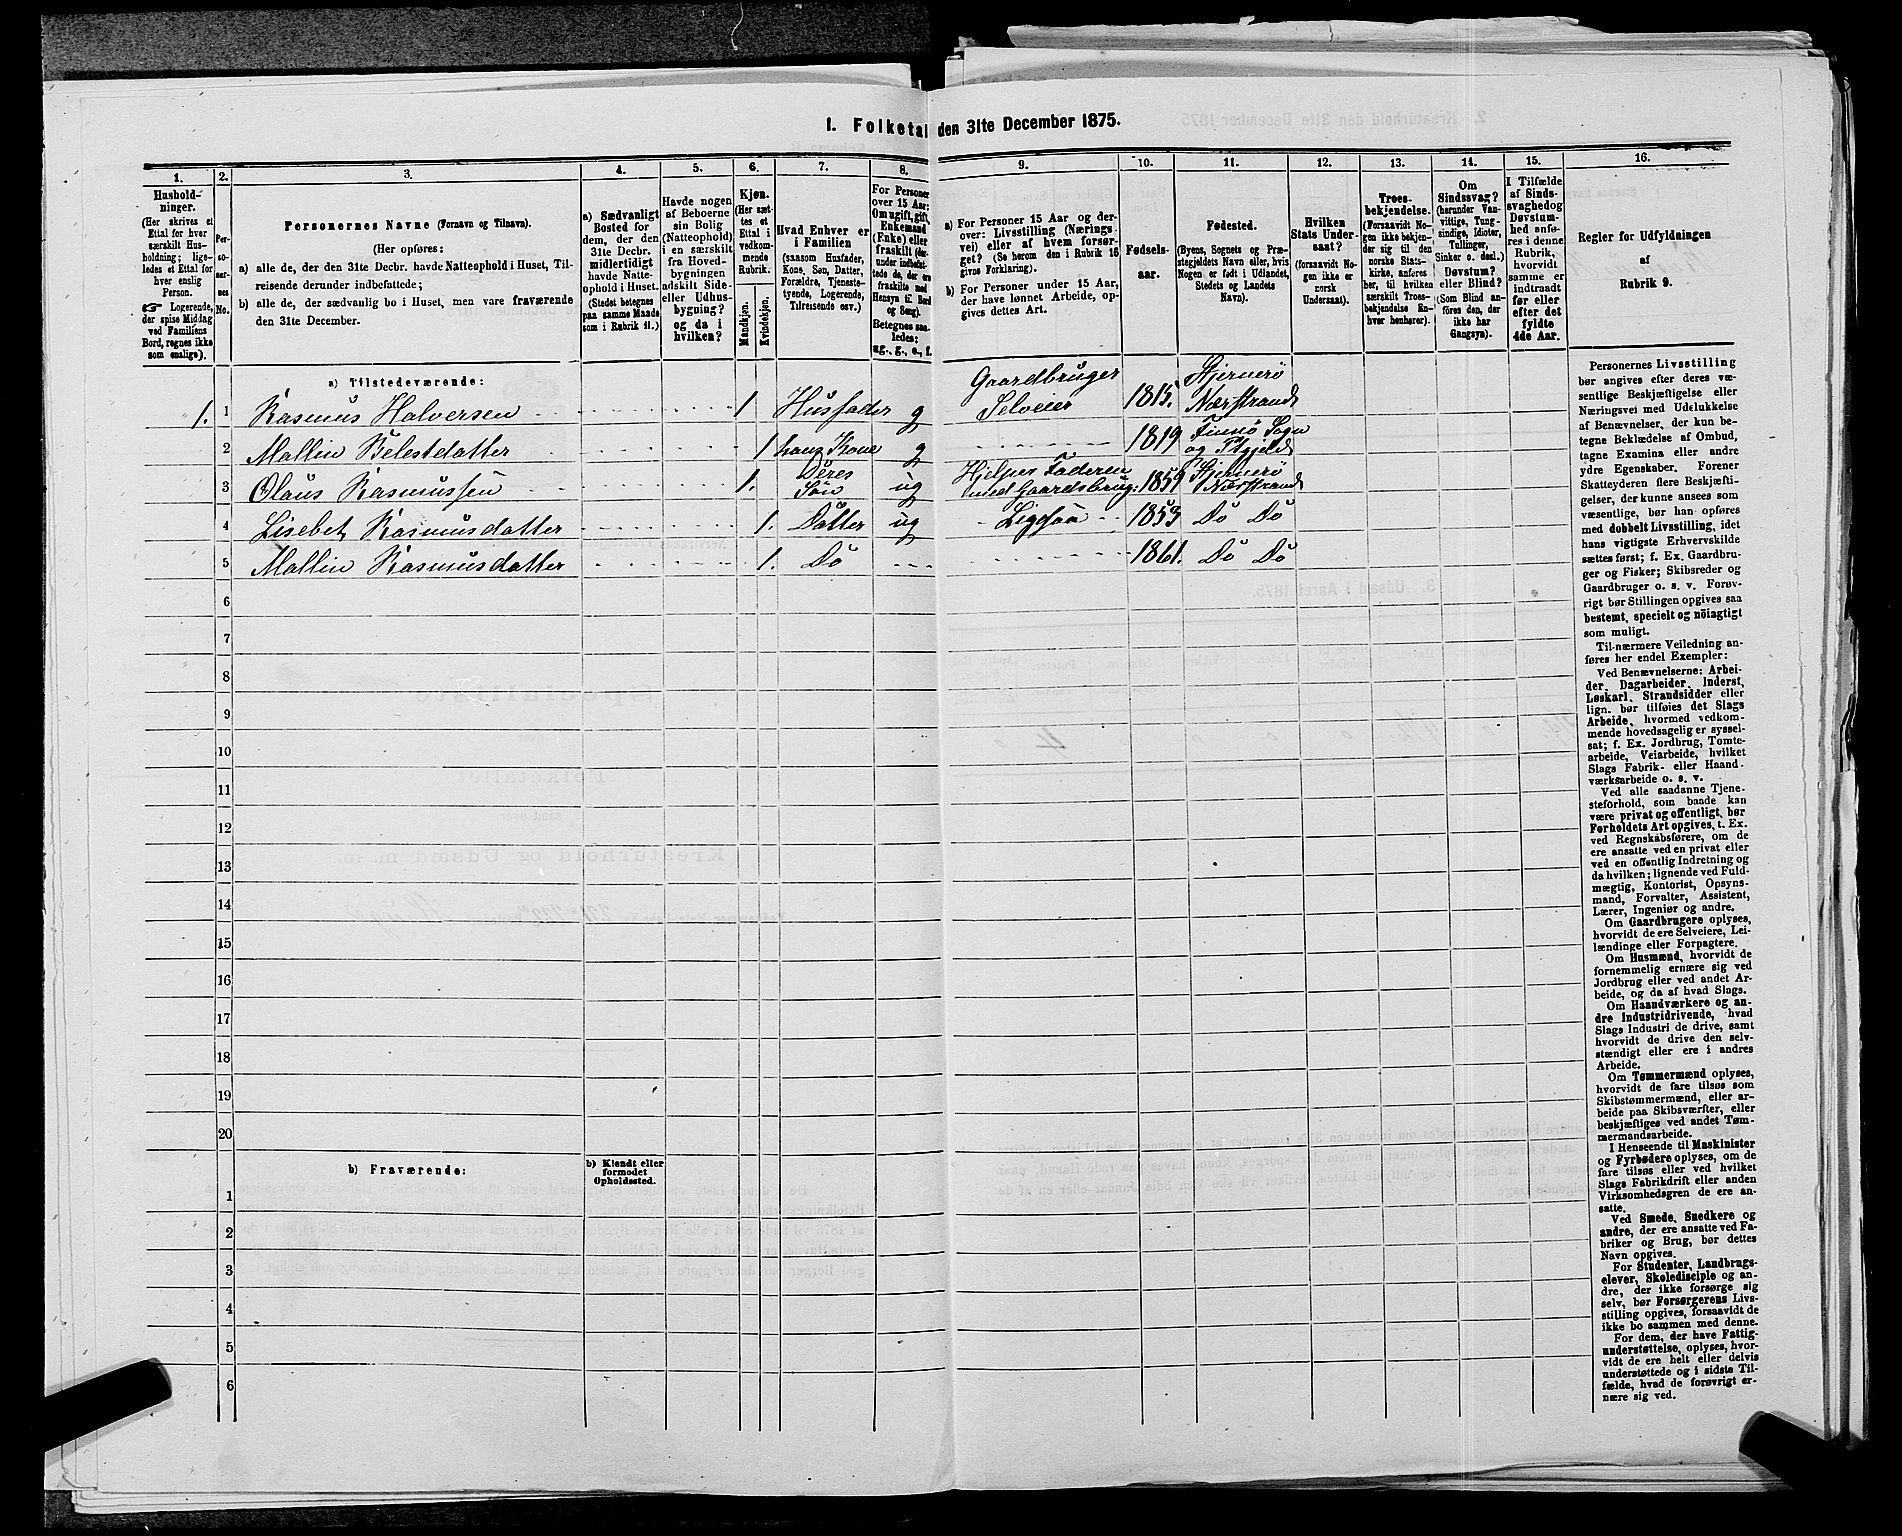 I. Folketal den 31te December 1875.
1. 2. 3. 4. 5. 6. 7. 8. 9. 10. 11. 12. 13. 14. 15. 16.
Hushold-
ninger.
(Her skrives et
Ettal for hver
særskilt Hus-
holdning; lige-
ledes et Ettal for
hver enslig
Person.
Logerende,
der spise Middag
ved Familiens
Bord, regnes ikke
som enslige).
Per-
so-
ner-
nes
No.
Personernes Navne (Fornavn og Tilnavn).
(Her opføres:
a) alle de, der den 31te Decbr. havde Natteophold i Huset, Til-
reisende derunder indbefattede;
b) alle de, der sædvanlig bo i Huset, men vare fraværende
den 31te December.
a) Sædvanligt
Bosted for
dem, der den
31te Decbr.
midlertidigt
havde Natte-
ophold i Huset.
(Stedet betegnes
paa samme Maade
som i Rubrik 11.)
Havde nogen
af Beboerne
sin Bolig
(Natteophold)
i en særskilt
fra Hoved-
bygningen
adskilt Side-
eller Udhus-
bygning?
og da i
hvilken?
Kjøn.
(Her sæt-
tes et
Ettal i
vedkom-
mende
Rubrik.
Mandkjøn.
Kvindekjøn.
Hvad Enhver er
i Familien
(saasom Husfader,
Kone, Søn, Datter,
Forældre, Tjeneste-
tyende, Logerende,
Tilreisende osv.)
For Personer
over 15 Aar:
Om ugift, gift,
Enkemand
(Enke) eller
fraskilt (der-
under indbefat-
tede de, der ere
fraskilte med
Hensyn til Bord
og Seng).
Betegnes saa-
ledes:
ug., g., e., f.
a) For Personer 15 Aar og der-
over: Livsstilling (Nærings-
vei) eller af hvem forsør-
get? (Se herom den i Rubrik 16
givne Forklaring).
b) For Personer under 15 Aar,
der have lønnet Arbeide, op-
gives dettes Art.
Fødsels-
aar.
Fødested.
(Byens, Sognets og Præ-
stegjeldets Navn eller, hvis
Nogen er født i Udlandet,
Stedets og Landets
Navn).
Hvilken
Stats Under-
saat?
(forsaavidt No-
gen ikke er
norsk
Undersaat).
Troes-
bekjendelse.
(Forsaavidt No-
gen ikke bekjen-
der sig til den
norske Stats-
kirke, anføres
her, til hvilken
særskilt Troes-
bekjendelse En-
hver henhører).
Om
Sindssvag?
(herunder Van-
vittige, Tung-
sindige, Idioter,
Tullinger,
Sinker o. desl.)
Døvstum?
eller Blind?
(Som Blind an-
føres den, der
ikke har
Gangsyn).
I Tilfælde
af Sinds-
svaghed og
Døvstum-
hed anfø-
res i denne
Rubrik,
hvorvidt
samme er
indtraadt
før eller
efter det
fyldte
4de Aar.
Regler for Udfyldningen
af
Rubrik 9.
a) Tilstedeværende:
1. 1 Rasmus Halvorsen 1 Husfader g Gaardbruger Selveier 1815. Hjernerö Nærstrand
2 Mallin Belestedatter 1 hans Kone g 1819 Finnö Sogn og Pgjeld
3 Olaus Rasmussen 1. Deres Søn ug Hjelper Faderen med Gaardsbrug: 1859 Hjernerö Nærstrand
4 Lisebet Rasmusdatter 1. Datter ug Ligesaa 1853 Do Do
5 Mallin Rasmusdatter 1. Do 1861. Do Do
6
7
8
9
10
11
12
13
14
15
16
17
18
19
20
b) Fraværende:
b) Kjendt eller
formodet
Opholdssted.
1
2
3
4
5
6
Personernes Livsstilling
bør angives efter deres væ-
sentlige Beskjæftigelse eller
Næringsvei med Udelukkelse
af Benævnelser, der kun be-
tegne Beklædelse af Ombud,
tagne Examina eller andre
ydre Egenskaber. Forener
Skatteyderen flere Beskjæfti-
gelser, der kunne ansees som
væsentlige, bør han opføres
med dobbelt Livsstilling, idet
hans vigtigste Erhvervskilde
sættes først; f. Ex. Gaardbru-
ger og Fisker; Skibsreder og
Gaardbruger o. s. v. Forøv-
rigt bør Stillingen opgives saa
bestemt, specielt og nöiagtigt
som muligt.
Til nærmere Veiledning an-
føres her endel Exempler:
Ved Benævnelserne: Arbei-
der, Dagarbeider, Inderst,
Løskarl, Strandsidder eller
lign. bør tilføies det Slags
Arbeide, hvormed vedkom-
mende hovedsagelig er syssel-
sat; f. Ex. Jordbrug, Tomte-
arbeide, Veiarbeide, hvilket
Slags Fabrik- eller Haand-
værksarbeide o. s. v.
Ved alle saadanne Tjene-
steforhold, som baade kan
være privat og offentligt, bør
Forholdets Art opgives, t. Ex.
ved Regnskabsførere, om de
ere ansatte ved en privat eller
ved en offentlig Indretning og
da hvilken; lignende ved Fuld-
mægtig, Kontorist, Opsyns-
mand, Forvalter, Assistent,
Lærer, Ingeniør og andre.
Om Gaardbrugere oplyses,
hvorvidt de ere Selveiere, Lei-
lændinge eller Forpagtere.
Om Husmænd, hvorvidt de
fornemmelig ernære sig ved
Jordbrug eller ved andet Ar-
beide, og da af hvad Slags.
Om Haandværkere og an-
dre Industridrivende, hvad
Slags Industri de drive, samt
hvorvidt de drive den selv-
stændigt eller ere i andres
Arbeide.
Om Tømmermænd oplyses,
hvorvidt de fare tilsøs som
Skibstømmermænd, eller ar-
beide paa Skibsværfter, eller
beskjæftiges ved andet Tøm-
mermandsarbeide.
I Henseende til Maskinister
og Fyrbødere oplyses, om de
fare tilsøs eller ved hvilket
Slags Fabrikdrift eller anden
Virksomhedsgren de ere an-
satte.
Ved Smede, Snedkere og
andre, der ere ansatte ved Fa-
briker og Brug, bør dettes
Navn opgives.
For Studenter, Landbrugs-
elever, Skoledisciple og an-
dre, der ikke forsørge sig
selv, bør Forsørgerens Livs-
stilling opgives, forsaavidt de
ikke bo sammen med denne.
For dem, der have Fattig-
understøttelse, oplyses, hvor-
vidt de ere helt eller delvis
understøttede og i sidste Til-
fælde, hvad de forøvrigt er-
nære sig ved.